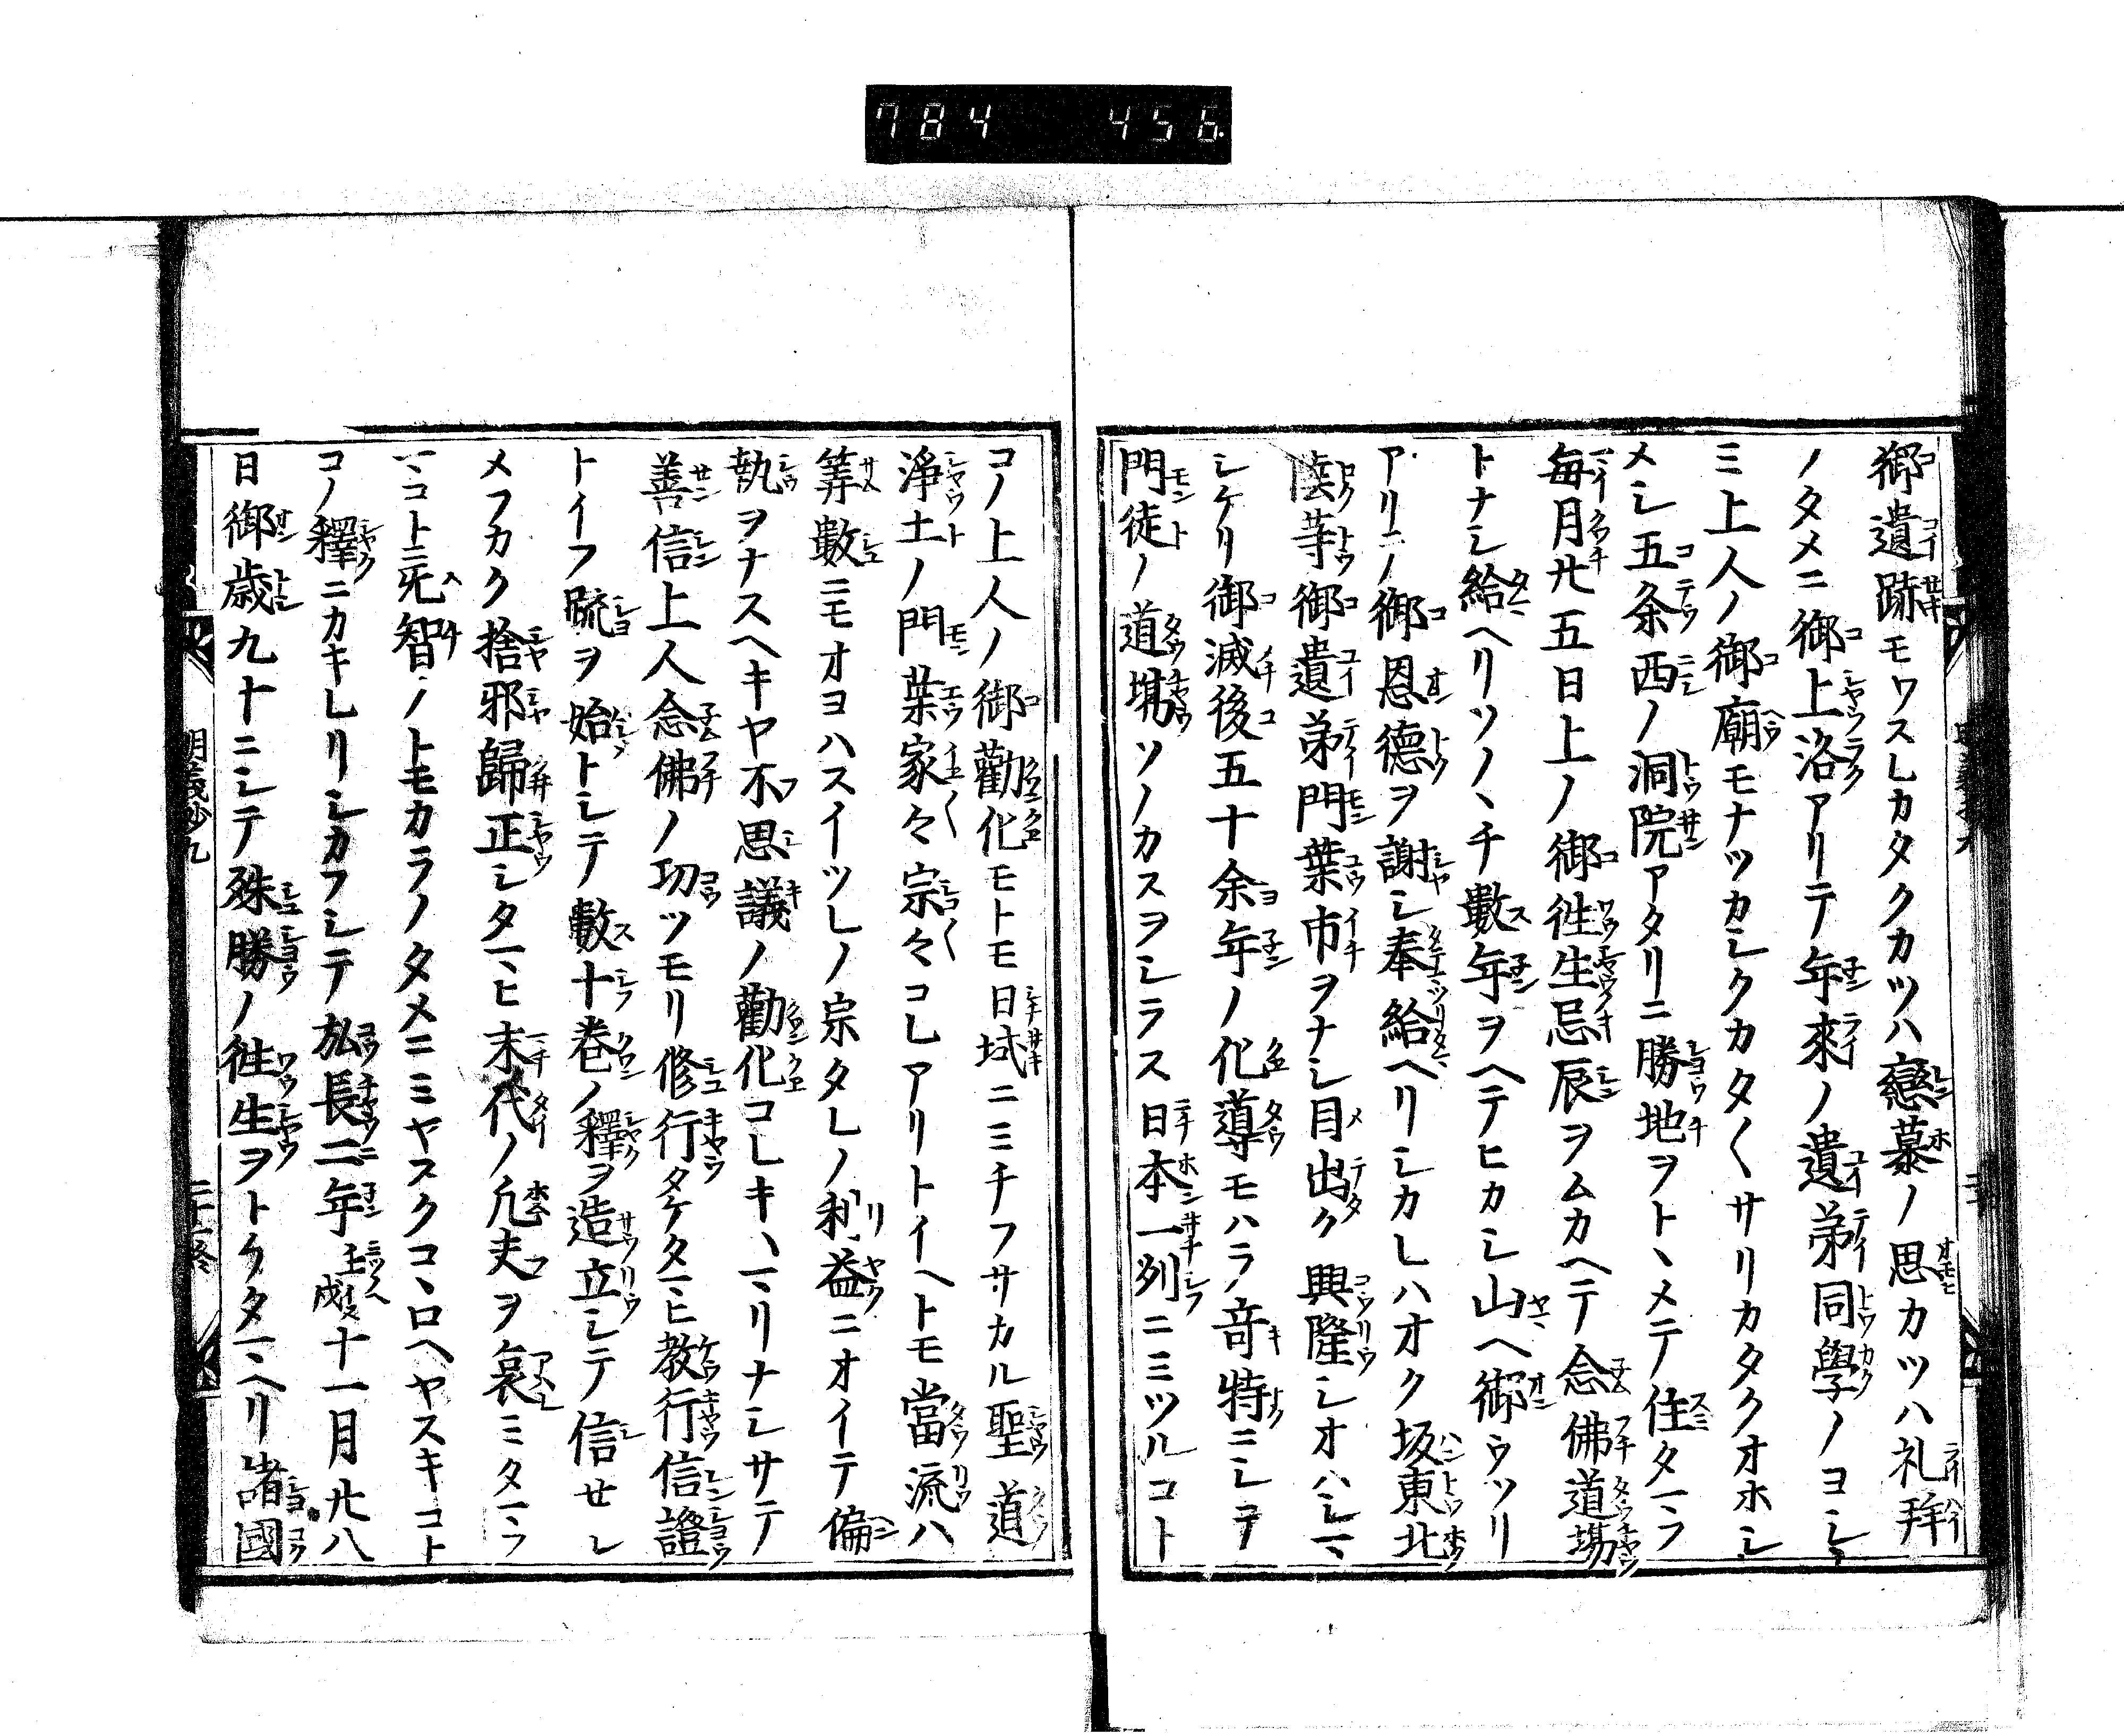 784 456
御遺跡モワスレカタクカツハ戀慕ノ思カツハ礼拜
ノタメニ御上洛アリテ年來ノ遺弟同學ノヨシ
ミ上人ノ御廟モナツカシクカタ〱サリカタクオホシ
メシ五条西ノ洞院アタリニ勝地ヲトヽメテ住タマフ
毎月廿五日上ノ御徃生忌辰ヲムカヘテ念佛道場
トナシ給ヘリソノヽチ數年ヲヘテヒカシ山ヘ御ウツリ
アリテノ御恩德ヲ謝シ奉給ヘリシカレハオク坂東北
陸等御遺弟門葉市ヲナシ目出タク興隆シオハシマ
シケリ御滅後五十余年ノ化導モハラ竒特ニシテ
門徒ノ道塲ソノカスヲシラス日本一列ニミツルコト
コノ上人ノ御勸化モトモ日域ニミチフサカル聖道
淨土ノ門葉家々宗々コレアリトイヘトモ當流ハ
筭數ニモオヨハスイツレノ宗タレノ利益ニオイテ偏
執ヲナスヘキヤ不思議ノ勸化コレキハマリナシサテ
善信上人念佛ノ功ツモリ修行タケタマヒ教行信證
トイフ䟽ヲ始トシテ數十巻ノ釋ヲ造立シテ信セシ
メフカク捨邪歸正シタマヒ末代ノ凡夫ヲ哀ミタマフ
マコトニ无智ノトモカラノタメニミヤスクコヽロヘヤスキコト
コノ釋ニカキレリシカフシテ弘長二年壬戌十一月廿八
日御歳九十ニシテ殊勝ノ徃生ヲトケタマヘリ諸國
明義抄九
二十終